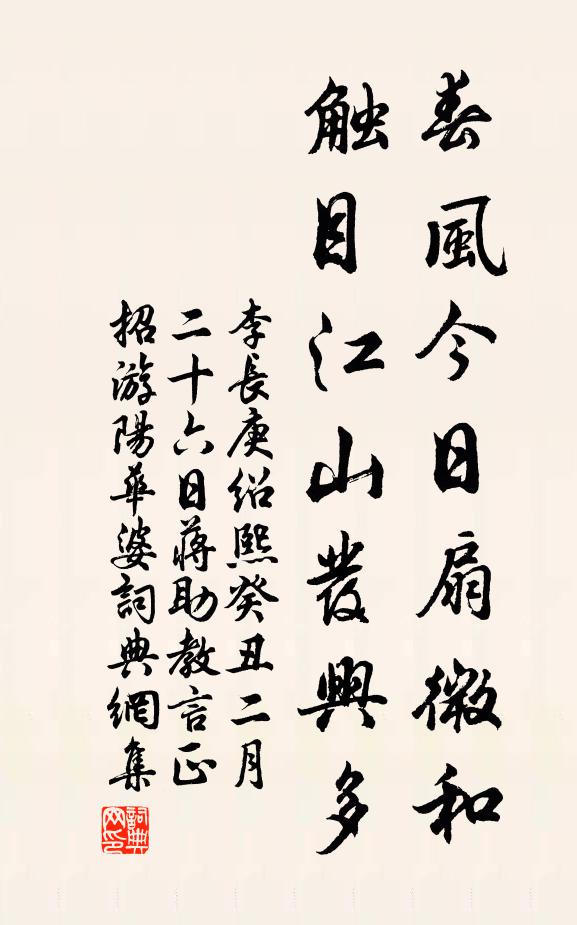 春風今日扇微和
触目江山發興多
李長庚绍熙癸丑二月
二十六日蔣助教言正
招游陽華婆詞典網集
詞典网印